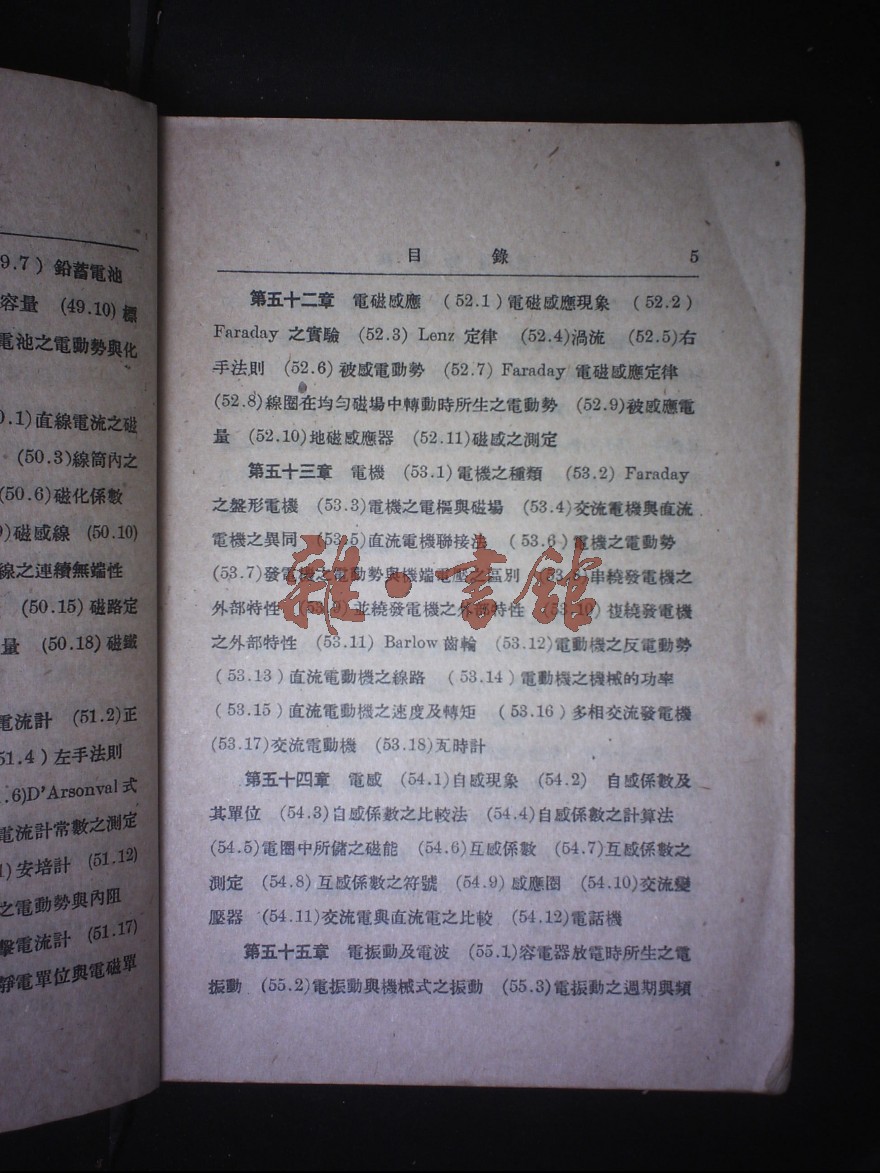 9.7) 鉛蓄電池
容量 (49.10) 標
電池之電動勢與化
0.1)直線電流之磁
(50.3)線筒內之
(50.6)磁化係數
)磁感線 (50.10)
線之連續無端性
(50.15) 磁路定
量 (50.18) 磁鐵
電流計 (51.2)正
51.4) 左手法則
.6)D'Arsonval 式
電流計常數之測定
1) 安培計 (51.12)
之電動勢與內阻
擊電流計 (51.17)
靜電單位與電磁單
目 錄 5
第五十二章 電磁感應 (52.1)電磁感應現象 (52.2)
Faraday 之實驗 (52.3) Lenz 定律 (52.4)渦流 (52.5)右
手法則 (52.6) 被感電動勢 (52.7) Faraday 電磁感應定律
(52.8)線圈在均勻磁場中轉動時所生之電動勢 (52.9)被感應電
量 (52.10)地磁感應器 (52.11)磁感之測定
第五十三章 電機 (53.1)電機之種類 (53.2) Faraday
之盤形電機 (53.3)電機之電樞與磁場 (53.4)交流電機與直流
電機之異同 (53.5)直流電機聯接法 (53.6)電機之電動勢
(53.7)發電機之電動勢與機端電壓之區別 (53.8)串繞發電機之
外部特性 (53.9) 並繞發電機之外部特性 (53.10) 複繞發電機
之外部特性 (53.11) Barlow 齒輪 (53.12)電動機之反電動勢
(53.13) 直流電動機之線路 (53.14) 電動機之機械的功率
(53.15) 直流電動機之速度及轉矩 (53.16) 多相交流發電機
(53.17)交流電動機 (53.18)瓦時計
第五十四章 電感 (54.1)自感現象 (54.2) 自感係數及
其單位 (54.3)自感係數之比較法 (54.4)自感係數之計算法
(54.5)電圈中所儲之磁能 (54.6)互感係數 (54.7)互感係數之
測定 (54.8) 互感係數之符號 (54.9) 感應圈 (54.10)交流變
壓器 (54.11)交流電與直流電之比較 (54.12)電話機
第五十五章 電振動及電波 (55.1)容電器放電時所生之電
振動 (55.2)電振動與機械式之振動 (55.3)電振動之週期與頻
雜·書館